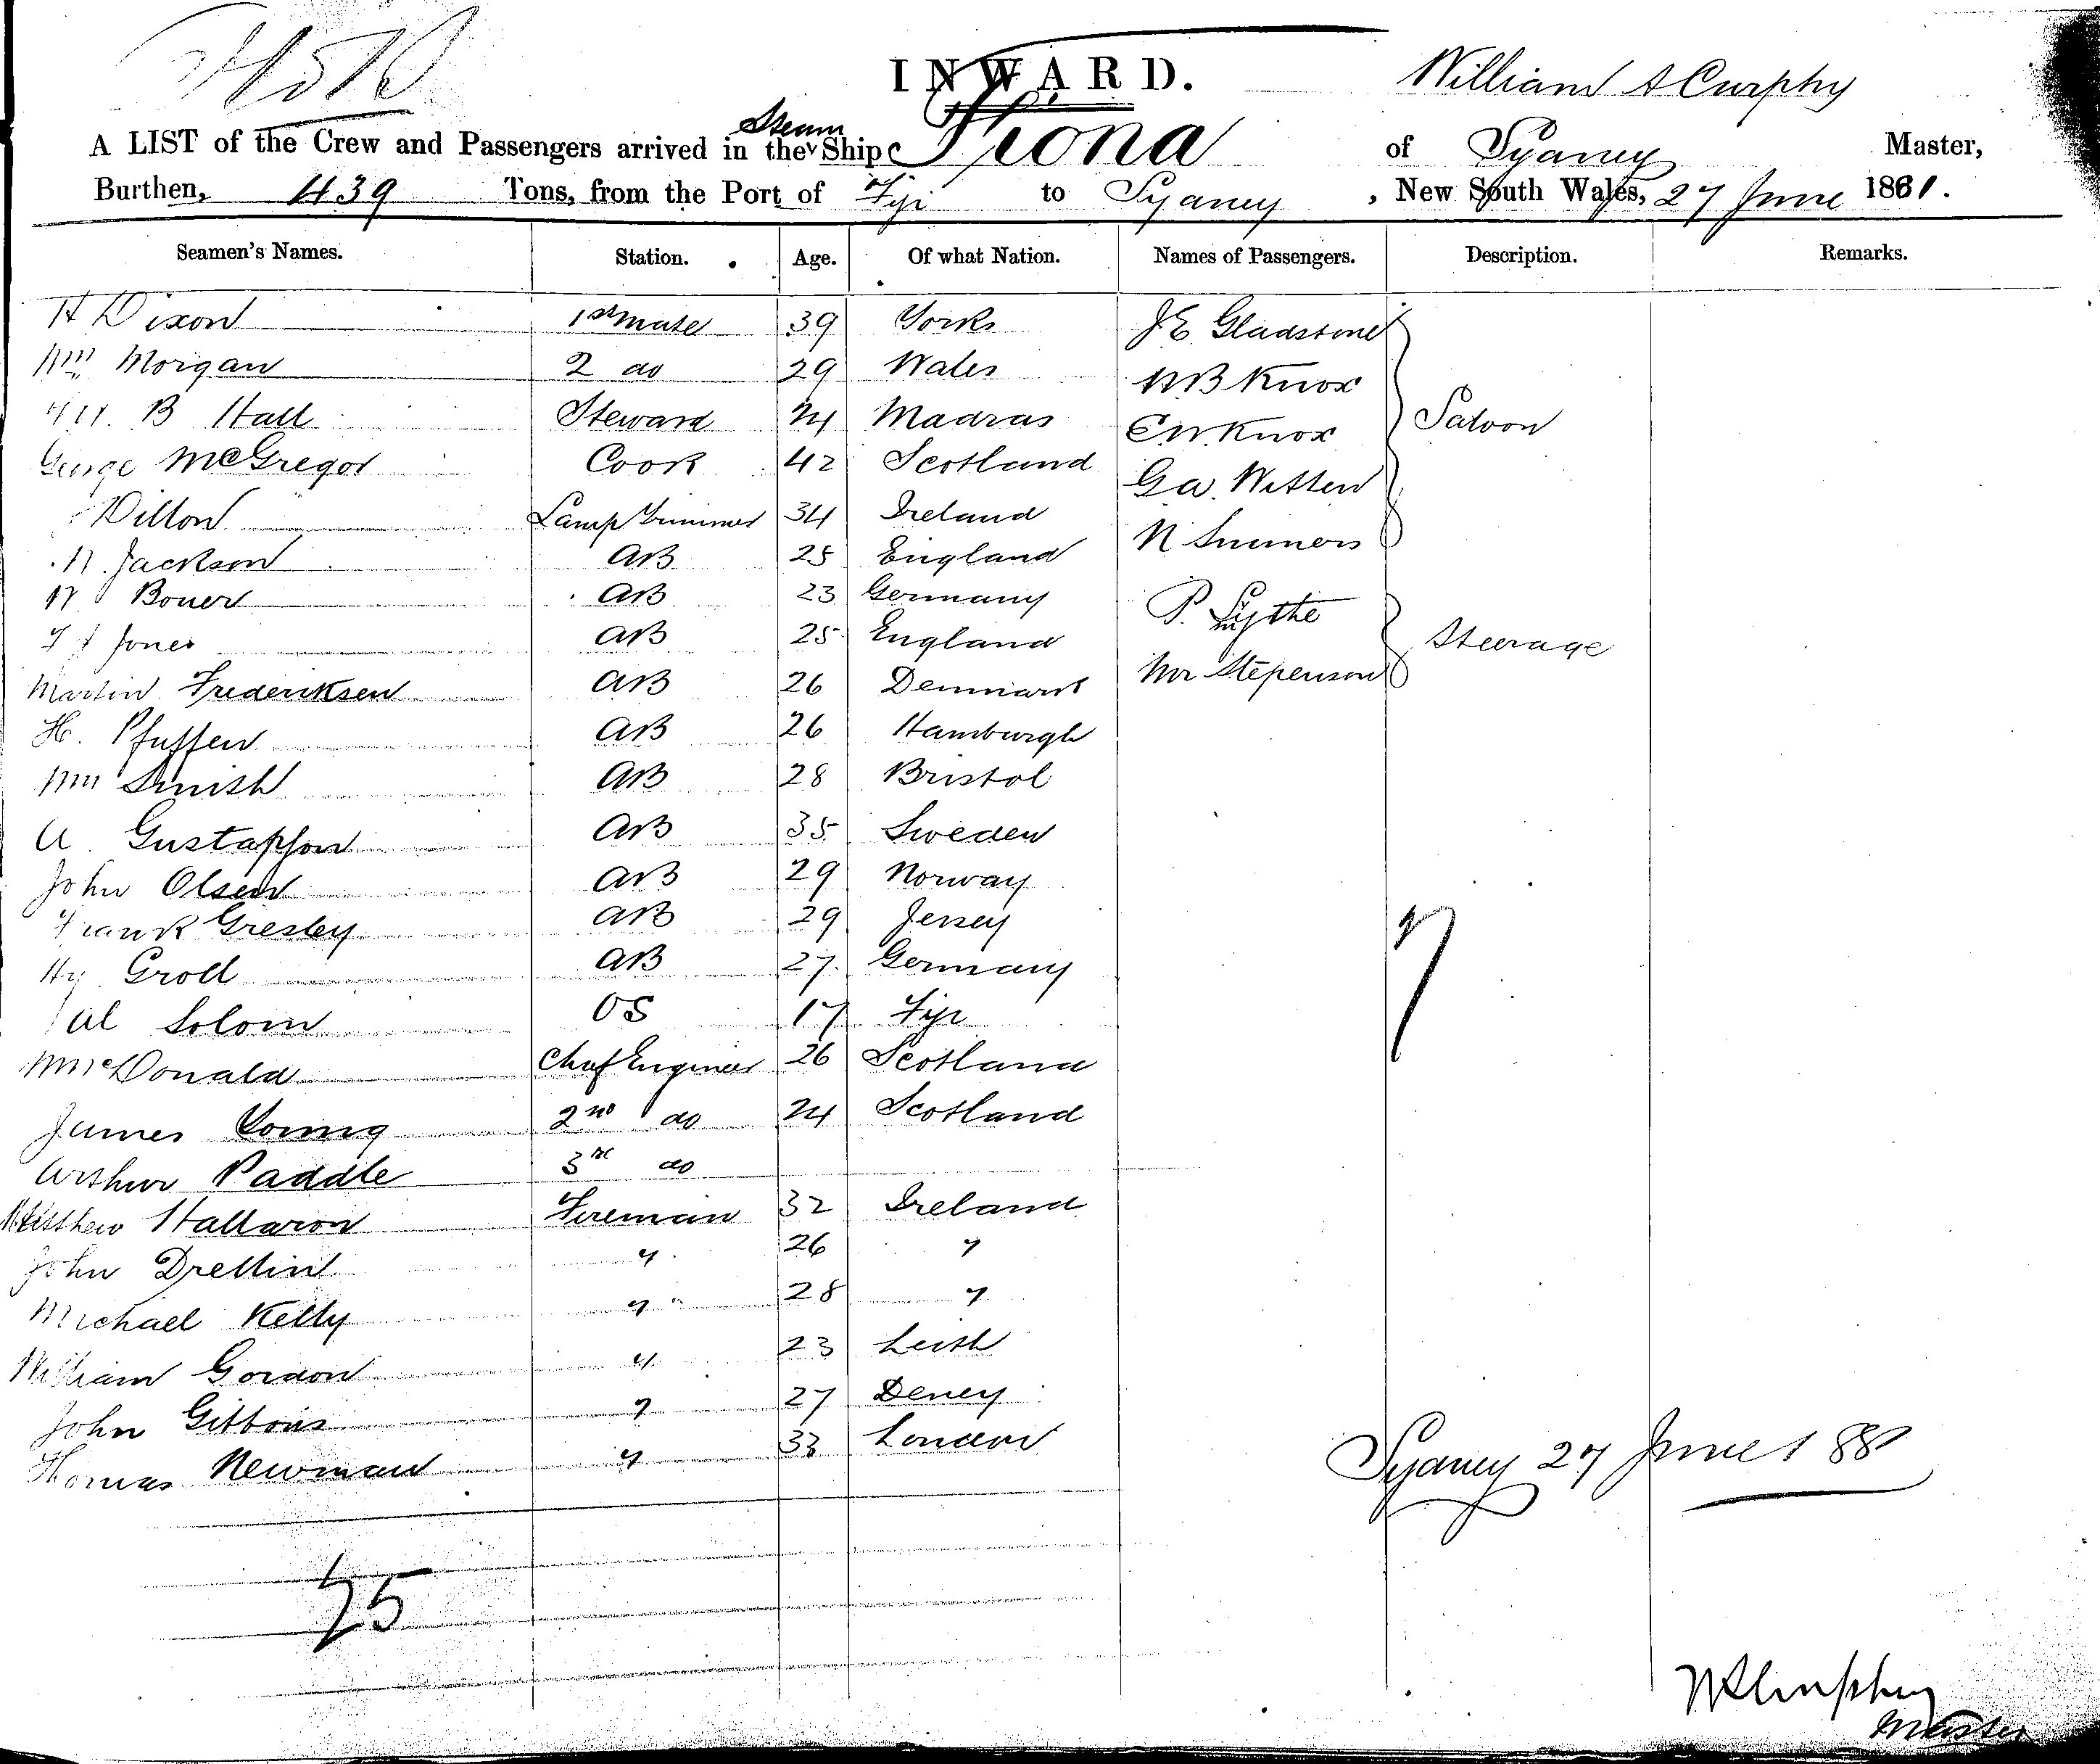 INWARD.
William A Curphy
A LIST of the Crew and Passengers arrived in the Steam Ship Fiona of Sydney Master,
Burthen, 439 Tons, from the Port of Fiji to Sydney, New South Wales, 27 June 1881.
Seamen's Names. Station. Age. Of what Nation. Names of Passengers. Description. Remarks.
H Dixon 1st mate 39 Yorks J E Gladstone
Wm Morgan 2 do 29 Wales W B Knox
B Hall Steward 24 Madras E W Knox Saloon
George McGregor Cook 42 Scotland G a. Witten
Dillon Lamp Trimmer 34 Ireland
W. Jackson AB 25 England N Summers
W Bower AB 23 Germany P. Lythe
Jones AB 25 England Steerage
Martin Frederiksen AB 26 Denmark Mr Stepenson
H. Pfuffen AB 26 Hamburgh
Wm Smith AB 28 Bristol
A. Gustaffson AB 35 Sweden
John Olsen AB 29 Norway
Frank Gresley AB 29 Jersey
Hy. Groll AB 27 Germany
Solom OS 17 Fiji
W McDonald Chief Engineer 26 Scotland
James Young 2nd do 24 Scotland
Arthur Paddle 3rd do
Matthew Hallaron Fireman 32 Ireland
John Drellin " 26 "
Michael Kelly " 28 "
William Gordon " 23 Leith
John Gibbons " 27 Derry
Thomas Newman " 33 London
7
Sydney 27 June 1881
25
W A Curphey
Master